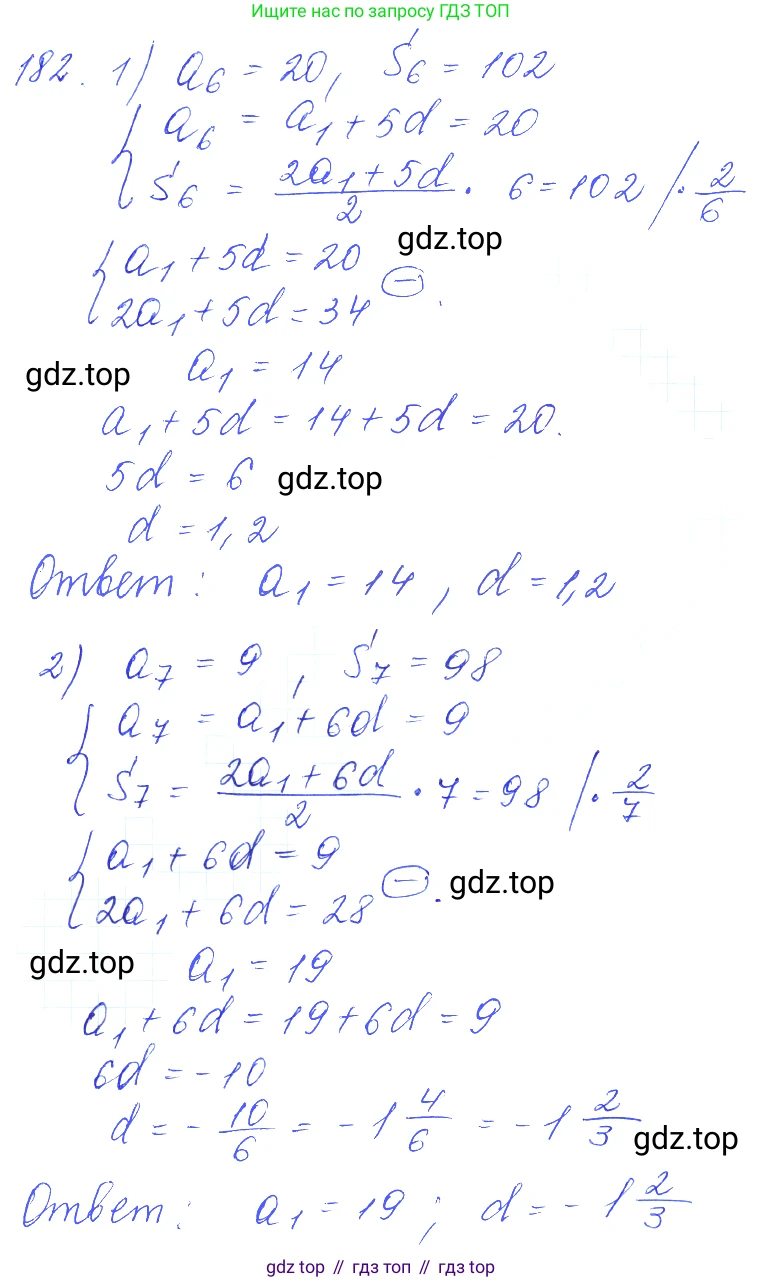 Ищите нас по запросу ГДЗ ТОП
182. 1) a₆ = 20, S₆ = 102
{ a₆ = a₁ + 5d = 20
S₆ = (2a₁ + 5d)/2 · 6 = 102 / · 2/6
{ a₁ + 5d = 20
gdz.top
2a₁ + 5d = 34 ⊖.
a₁ = 14
gdz.top
a₁ + 5d = 14 + 5d = 20.
5d = 6
gdz.top
d = 1,2
Ответ: a₁ = 14, d = 1,2
2) a₇ = 9, S₇ = 98
{ a₇ = a₁ + 6d = 9
S₇ = (2a₁ + 6d)/2 · 7 = 98 / · 2/7
{ a₁ + 6d = 9
2a₁ + 6d = 28 ⊖.
gdz.top
gdz.top
a₁ = 19
a₁ + 6d = 19 + 6d = 9
6d = -10
d = - 10/6 = - 1 4/6 = - 1 2/3
gdz.top
Ответ: a₁ = 19; d = - 1 2/3
gdz top // гдз топ // гдз top // gdz топ